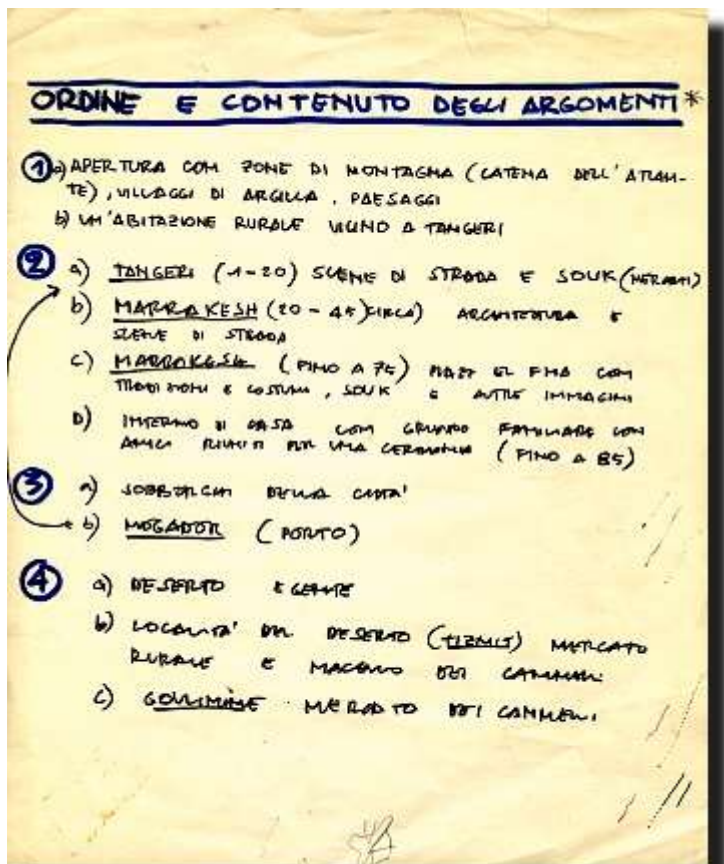 ORDINE E CONTENUTO DEGLI ARGOMENTI*
1 a) APERTURA CON ZONE DI MONTAGNA (CATENA DELL'ATLAN-
TE), VILLAGGI DI ARGILLA, PAESAGGI
b) UN'ABITAZIONE RURALE VICINO A TANGERI
2 a) TANGERI (1-20) SCENE DI STRADA E SOUK (MERCATI)
b) MARRAKESH (20-45) CIRCA) ARCHITETTURA E
SCENE DI STRADA
c) MARRAKESH (FINO A 75) EL FNA CON
TRADIZIONI E COSTUMI, SOUK E ALTRE IMMAGINI
D) INTERNO DI CASA CON GRUPPO FAMILIARE CON
AMICI RIUNITI PER UNA CERIMONIA (FINO A 85)
3 a) SOBBORGHI DELLA CITTA'
b) MOGADOR (PORTO)
4 a) DESERTO E GENTE
b) LOCALITA' DEL DESERTO (TIZNIT) MERCATO
RURALE E MACELLO DEI CAMMELLI
C) GOULIMINE MERCATO DEI CAMMELLI